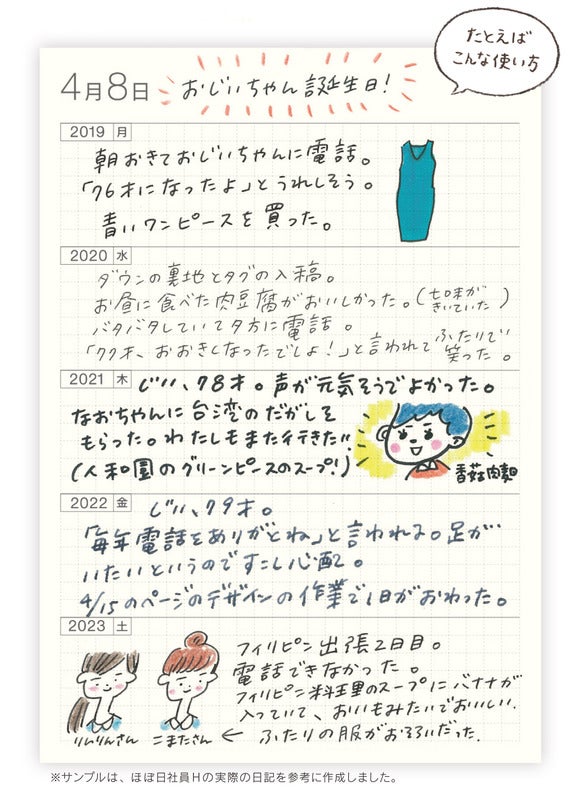 たとえば
こんな使い方
4月8日 おじいちゃん誕生日!
2019 月
朝おきておじいちゃんに電話。
「76才になったよ」とうれしそう。
青いワンピースを買った。
2020 水
ダウンの裏地とタグの入稿。
お昼に食べた肉豆腐がおいしかった。(七味がきいていた)
バタバタしていて夕方に電話。
「77才、おおきくなったでしょ!」と言われてふたりで笑った。
2021 木
じい、78才。声が元気そうでよかった。
なおちゃんに台湾のだがしを
もらった。わたしもまた行きたい!!
(人和園のグリーンピースのスープ!)
香菇肉麺
2022 金
じい、79才。
「毎年電話をありがとね」と言われる。足が…
いたいというのですこし心配。
4/15のページのデザインの作業で1日がおわった。
2023 土
フィリピン出張2日目。
電話できなかった。
フィリピン料理のスープにバナナが
入っていて、おいもみたいでおいしい。
りんりんさん こまたさん ← ふたりの服がおそろいだった。
※サンプルは、ほぼ日社員Hの実際の日記を参考に作成しました。